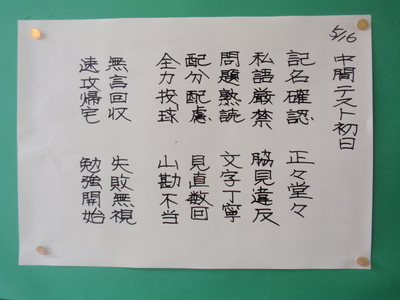 5/16
中間テスト初日
記名確認 正々堂々
私語厳禁 脇見違反
問題熟読 文字丁寧
配分配慮 見直数回
全力投球 山勘不当
無言回収 失敗無視
速攻帰宅 勉強開始